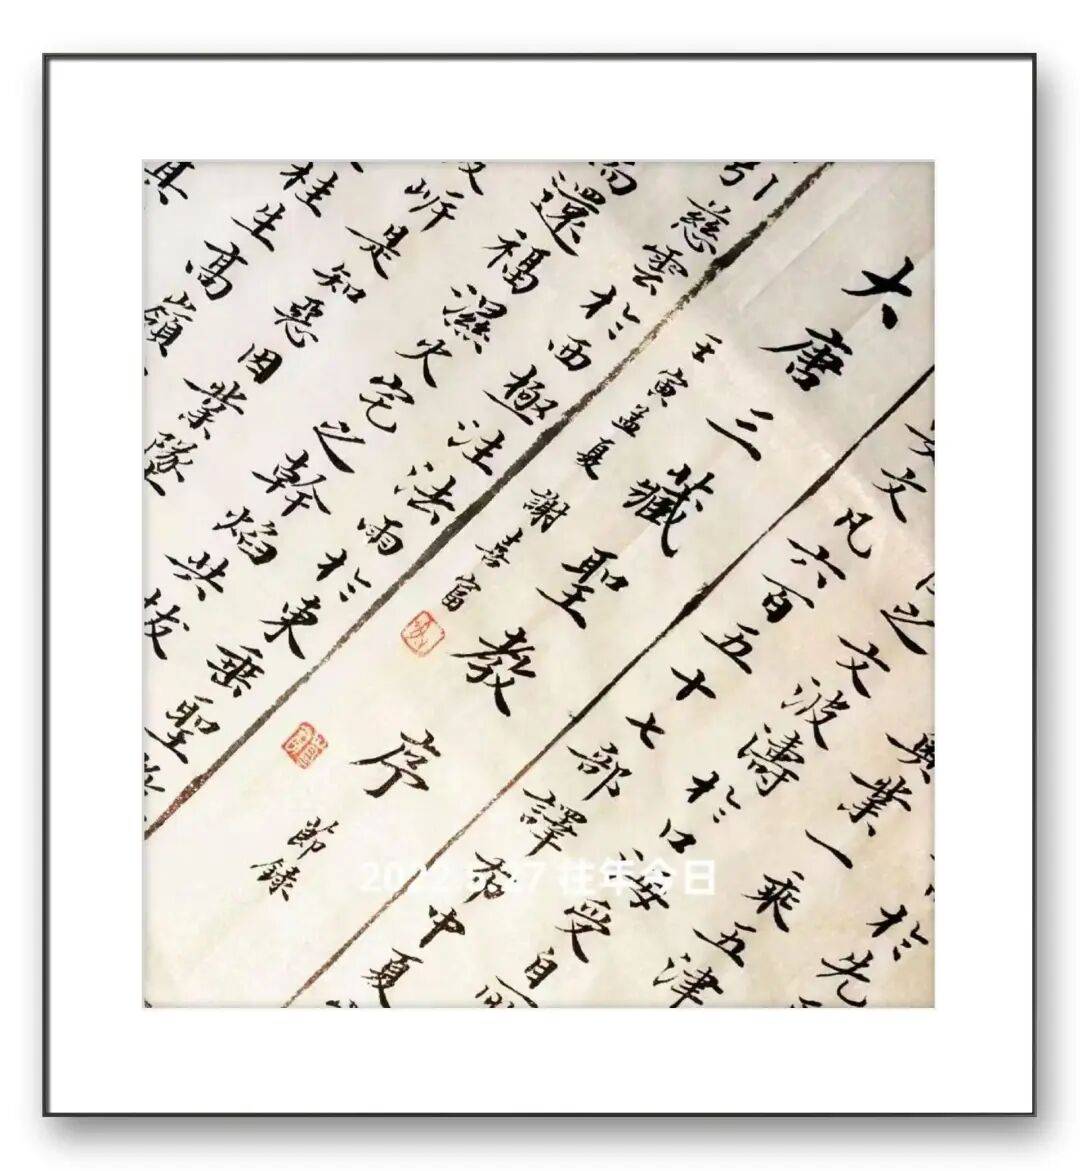 於先
興業一乘五津
之文波濤於口海爰自
文凡六百五十七部譯布中夏
大唐三藏聖教序
節錄
壬寅孟夏 謝喜富
引慈雲於西極注法雨於東垂聖教
還福濕火宅之幹焰共拔
昕是知惡因業墜
桂生高嶺
其
往年今日